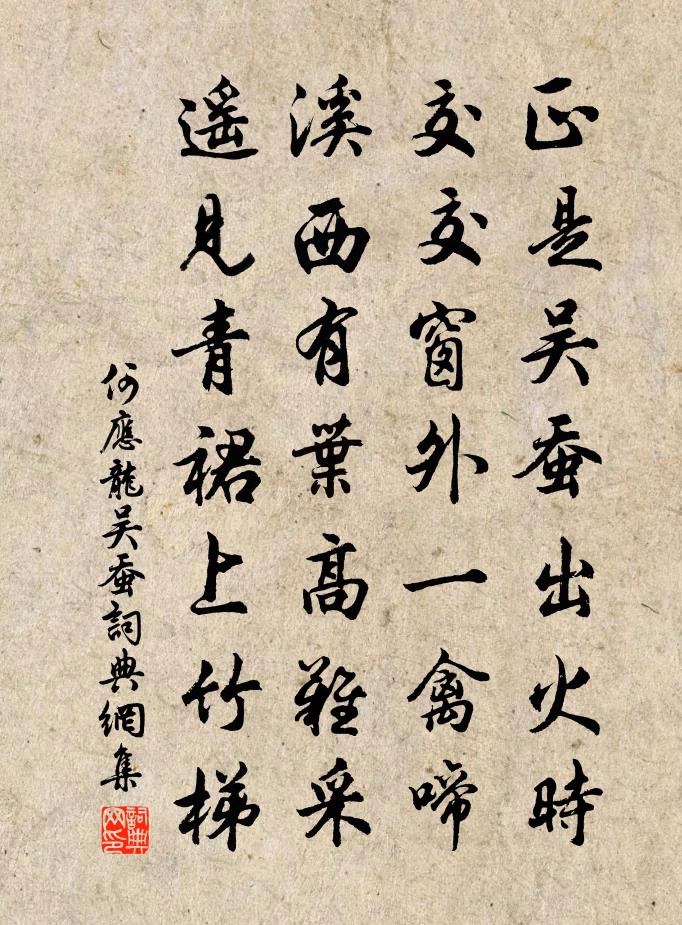 正是吴蚕出火時
交交窗外一禽啼
溪西有葉高難采
遥見青裙上竹梯
何應龍吴蚕詞典網集
詞典網印